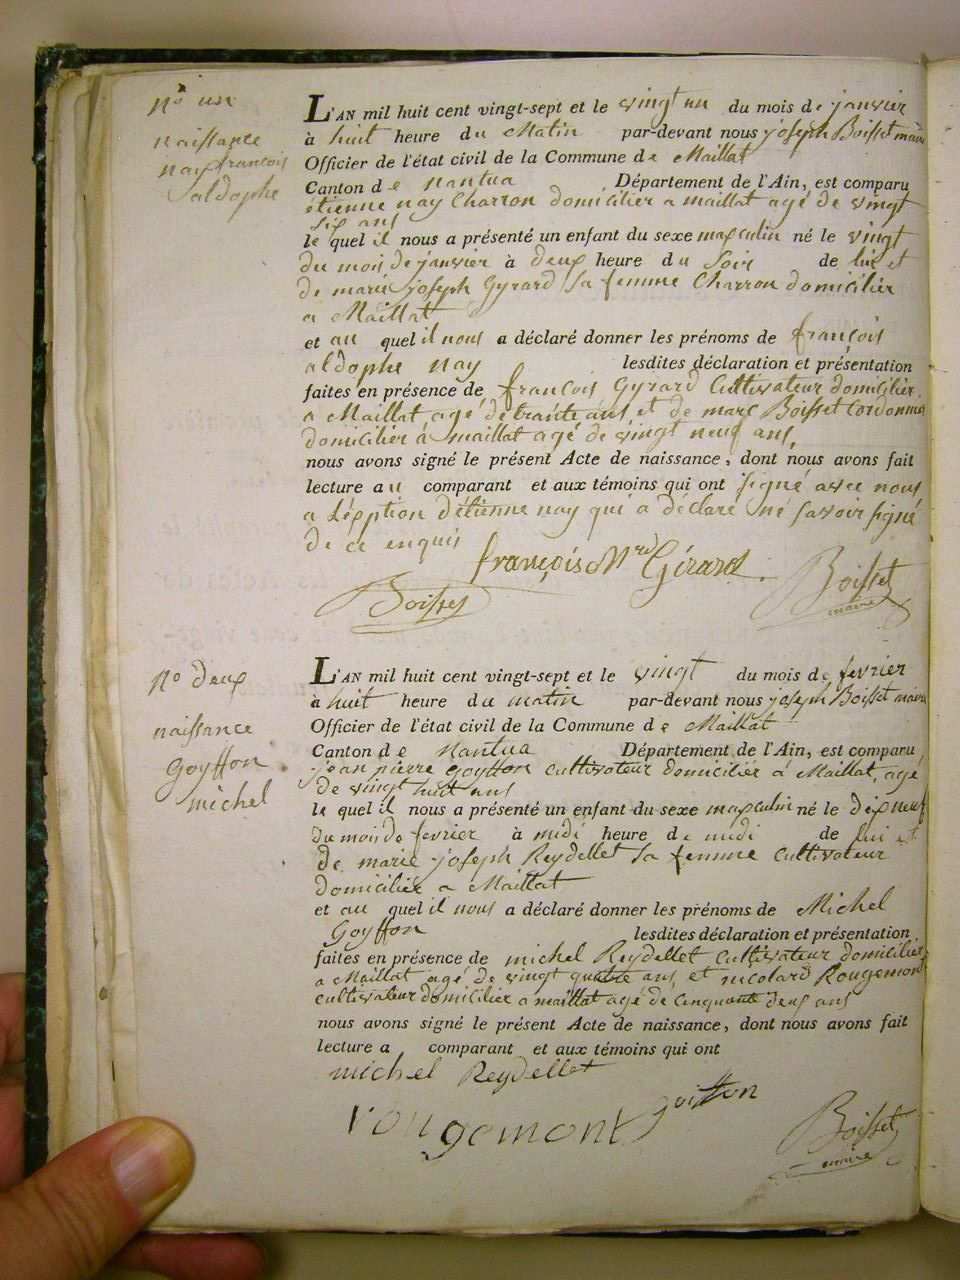 No un
naissance
nay françois
aldophe
L'AN mil huit cent vingt-sept et le vingt un du mois de janvier
à huit heure du Matin par-devant nous joseph Boisset maire
Officier de l'état civil de la Commune de Maillat
Canton de Nantua Département de l'Ain, est comparu
étienne nay Charron domicilier a maillat agé de vingt
six ans
le quel il nous a présenté un enfant du sexe masculin né le vingt
du mois de janvier à deux heure du Soir de lui et
de marie joseph Gyrard sa femme Charron domicilier
a Maillat
et au quel il nous a déclaré donner les prénoms de françois
aldophe nay lesdites déclaration et présentation
faites en présence de françois Gyrard Cultivateur domicilier
a Maillat agé de trante ans, et de marc Boisset Cordonnier
domicilier à maillat agé de vingt neuf ans,
nous avons signé le présent Acte de naissance, dont nous avons fait
lecture au comparant et aux témoins qui ont signé avec nous
a l'éxption d'étienne nay qui a déclaré ne savoir signé
de ce enquis
françois Mrd Gérard
Boisset
Boisset
maire
No deux
naissance
Goyffon
michel
L'AN mil huit cent vingt-sept et le vingt du mois de fevrier
à huit heure du matin par-devant nous joseph Boisset maire
Officier de l'état civil de la Commune de Maillat
Canton de Nantua Département de l'Ain, est comparu
jean pierre goyffon cultivateur domicilié à Maillat, agé
de vingt huit ans
le quel il nous a présenté un enfant du sexe masculin né le dix neuf
du mois de fevrier à midi heure de midi de lui et
de marie joseph Reydellet sa femme cultivateur
domiciliée a Maillat
et au quel il nous a déclaré donner les prénoms de Michel
Goyffon lesdites déclaration et présentation
faites en présence de michel Reydellet Cultivateur domicilier
a Maillat agé de vingt quatre ans, et nicolard Rougemont
cultivateur domicilier a maillat agé de cinquante deux ans
nous avons signé le présent Acte de naissance, dont nous avons fait
lecture a comparant et aux témoins qui ont
michel Reydellet
rougemont goiffon
Boisset
maire